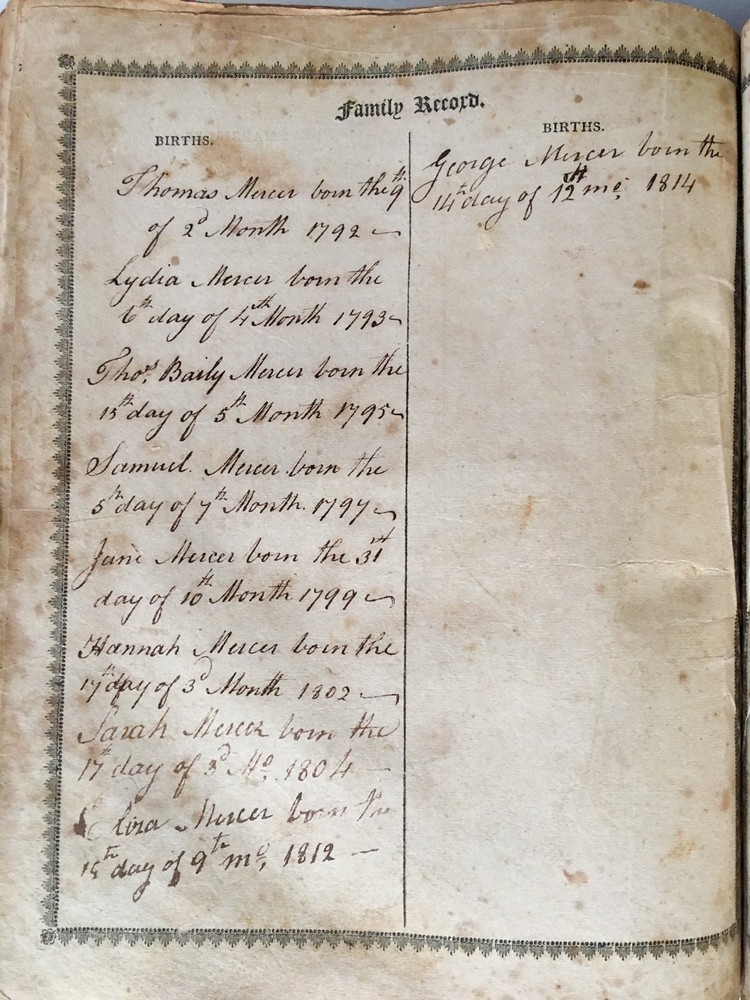 Family Record.
BIRTHS.
Thomas Mercer born the 9th
of 2d Month 1792
Lydia Mercer born the
6th day of 4th Month 1793
Thos. Baily Mercer born the
15th day of 5th Month 1795
Samuel Mercer born the
5th day of 7th Month. 1797
Jane Mercer born the 31st
day of 10th Month 1799
Hannah Mercer born the
17th day of 3d Month 1802
Sarah Mercer born the
17th day of 3d Mo. 1804
Eliza Mercer born the
15th day of 9th mo, 1812
BIRTHS.
George Mercer born the
14th day of 12th mo: 1814